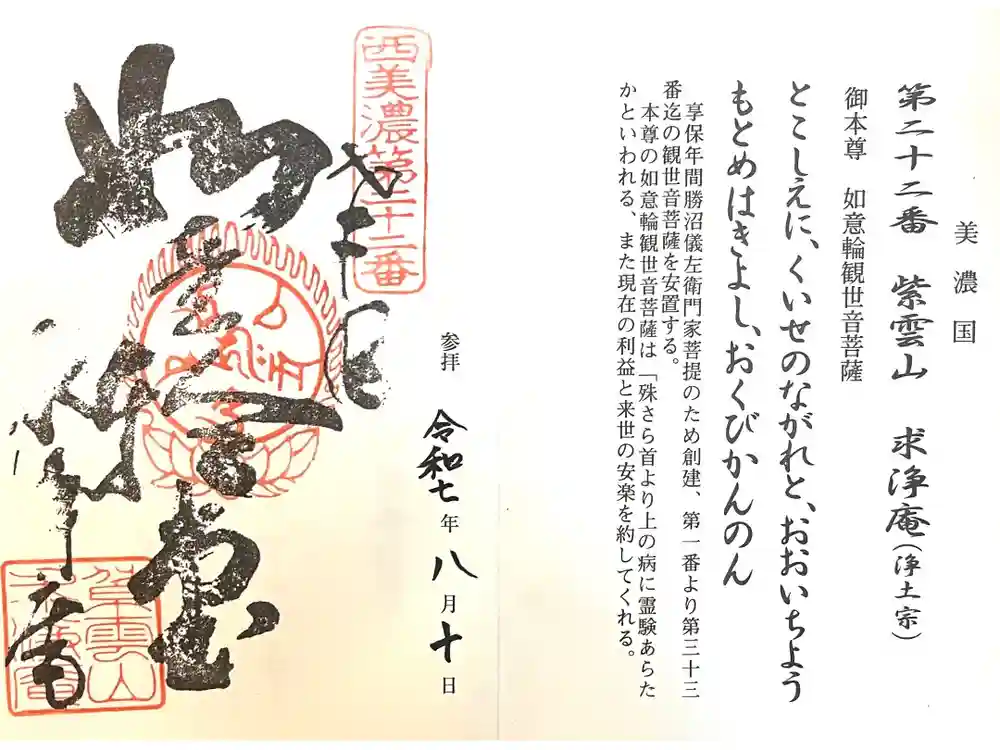 美濃国
第二十二番 紫雲山 求浄庵(浄土宗)
御本尊 如意輪観世音菩薩
とこしえに、くいせのながれと、おおいちよう
もとめはきよし、おくびかんのん
享保年間勝沼儀左衛門家菩提のため創建、第一番より第三十三
番迄の観世音菩薩を安置する。
本尊の如意輪観世音菩薩は「殊さら首より上の病に霊験あらた
かといわれる、また現在の利益と来世の安楽を約してくれる。
西美濃第二十二番
参拝 令和七年八月十日
紫雲山
求浄庵